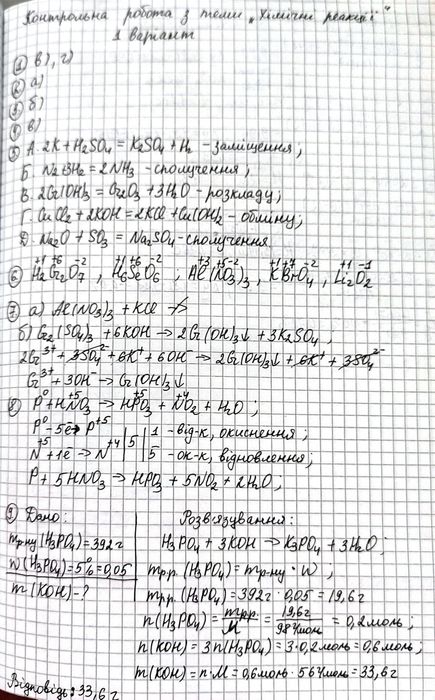 Контрольна робота з теми „Хімічні реакції"
1 варіант
① в), г)
② а)
③ б)
④ в)
⑤ А. 2K + H₂SO₄ = K₂SO₄ + H₂ - заміщення;
Б. N₂ + 3H₂ = 2NH₃ - сполучення;
В. 2Cr(OH)₃ = Cr₂O₃ + 3H₂O - розкладу;
Г. CuCl₂ + 2KOH = 2KCl + Cu(OH)₂ - обміну;
Д. Na₂O + SO₃ = Na₂SO₄ - сполучення
+1 +6 -2 +1 +6 -2 +3 +5 -2 +1 +7 -2 +1 -1
⑥ H₂Cr₂O₇, H₆SeO₆; Al(NO₃)₃, KBrO₄, Li₂O₂
⑦ а) Al(NO₃)₃ + KCl ↛
б) Cr₂(SO₄)₃ + 6KOH → 2Cr(OH)₃↓ + 3K₂SO₄;
2Cr³⁺ + 3SO₄²⁻ + 6K⁺ + 6OH⁻ → 2Cr(OH)₃↓ + 6K⁺ + 3SO₄²⁻
Cr³⁺ + 3OH⁻ → Cr(OH)₃↓
0 +5 +5 +4
⑧ P + HNO₃ → HPO₃ + NO₂ + H₂O;
P⁰ - 5e → P⁺⁵ | | 1 - від-к, окиснення;
N⁺⁵ + 1e → N⁺⁴ | 5 | 5 - ок-к, відновлення;
P + 5HNO₃ → HPO₃ + 5NO₂ + 2H₂O;
⑨ Дано:
mр-ну (H₃PO₄) = 392г
W(H₃PO₄) = 5% = 0,05
m(KOH) - ?
Розв'язування:
H₃PO₄ + 3KOH → K₃PO₄ + 3H₂O;
mр.р. (H₃PO₄) = mр-ну · W;
mр.р. (H₃PO₄) = 392г · 0,05 = 19,6г
n(H₃PO₄) = mр.р./M = 19,6г/98г/моль = 0,2моль;
n(KOH) = 3n(H₃PO₄) = 3·0,2моль = 0,6моль;
m(KOH) = n·M = 0,6моль · 56г/моль = 33,6г
Відповідь: 33,6г